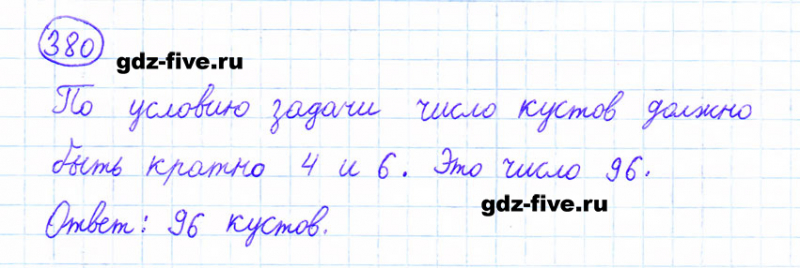 380
gdz-five.ru
По условию задачи число кустов должно
быть кратно 4 и 6. Это число 96.
gdz-five.ru
Ответ: 96 кустов.